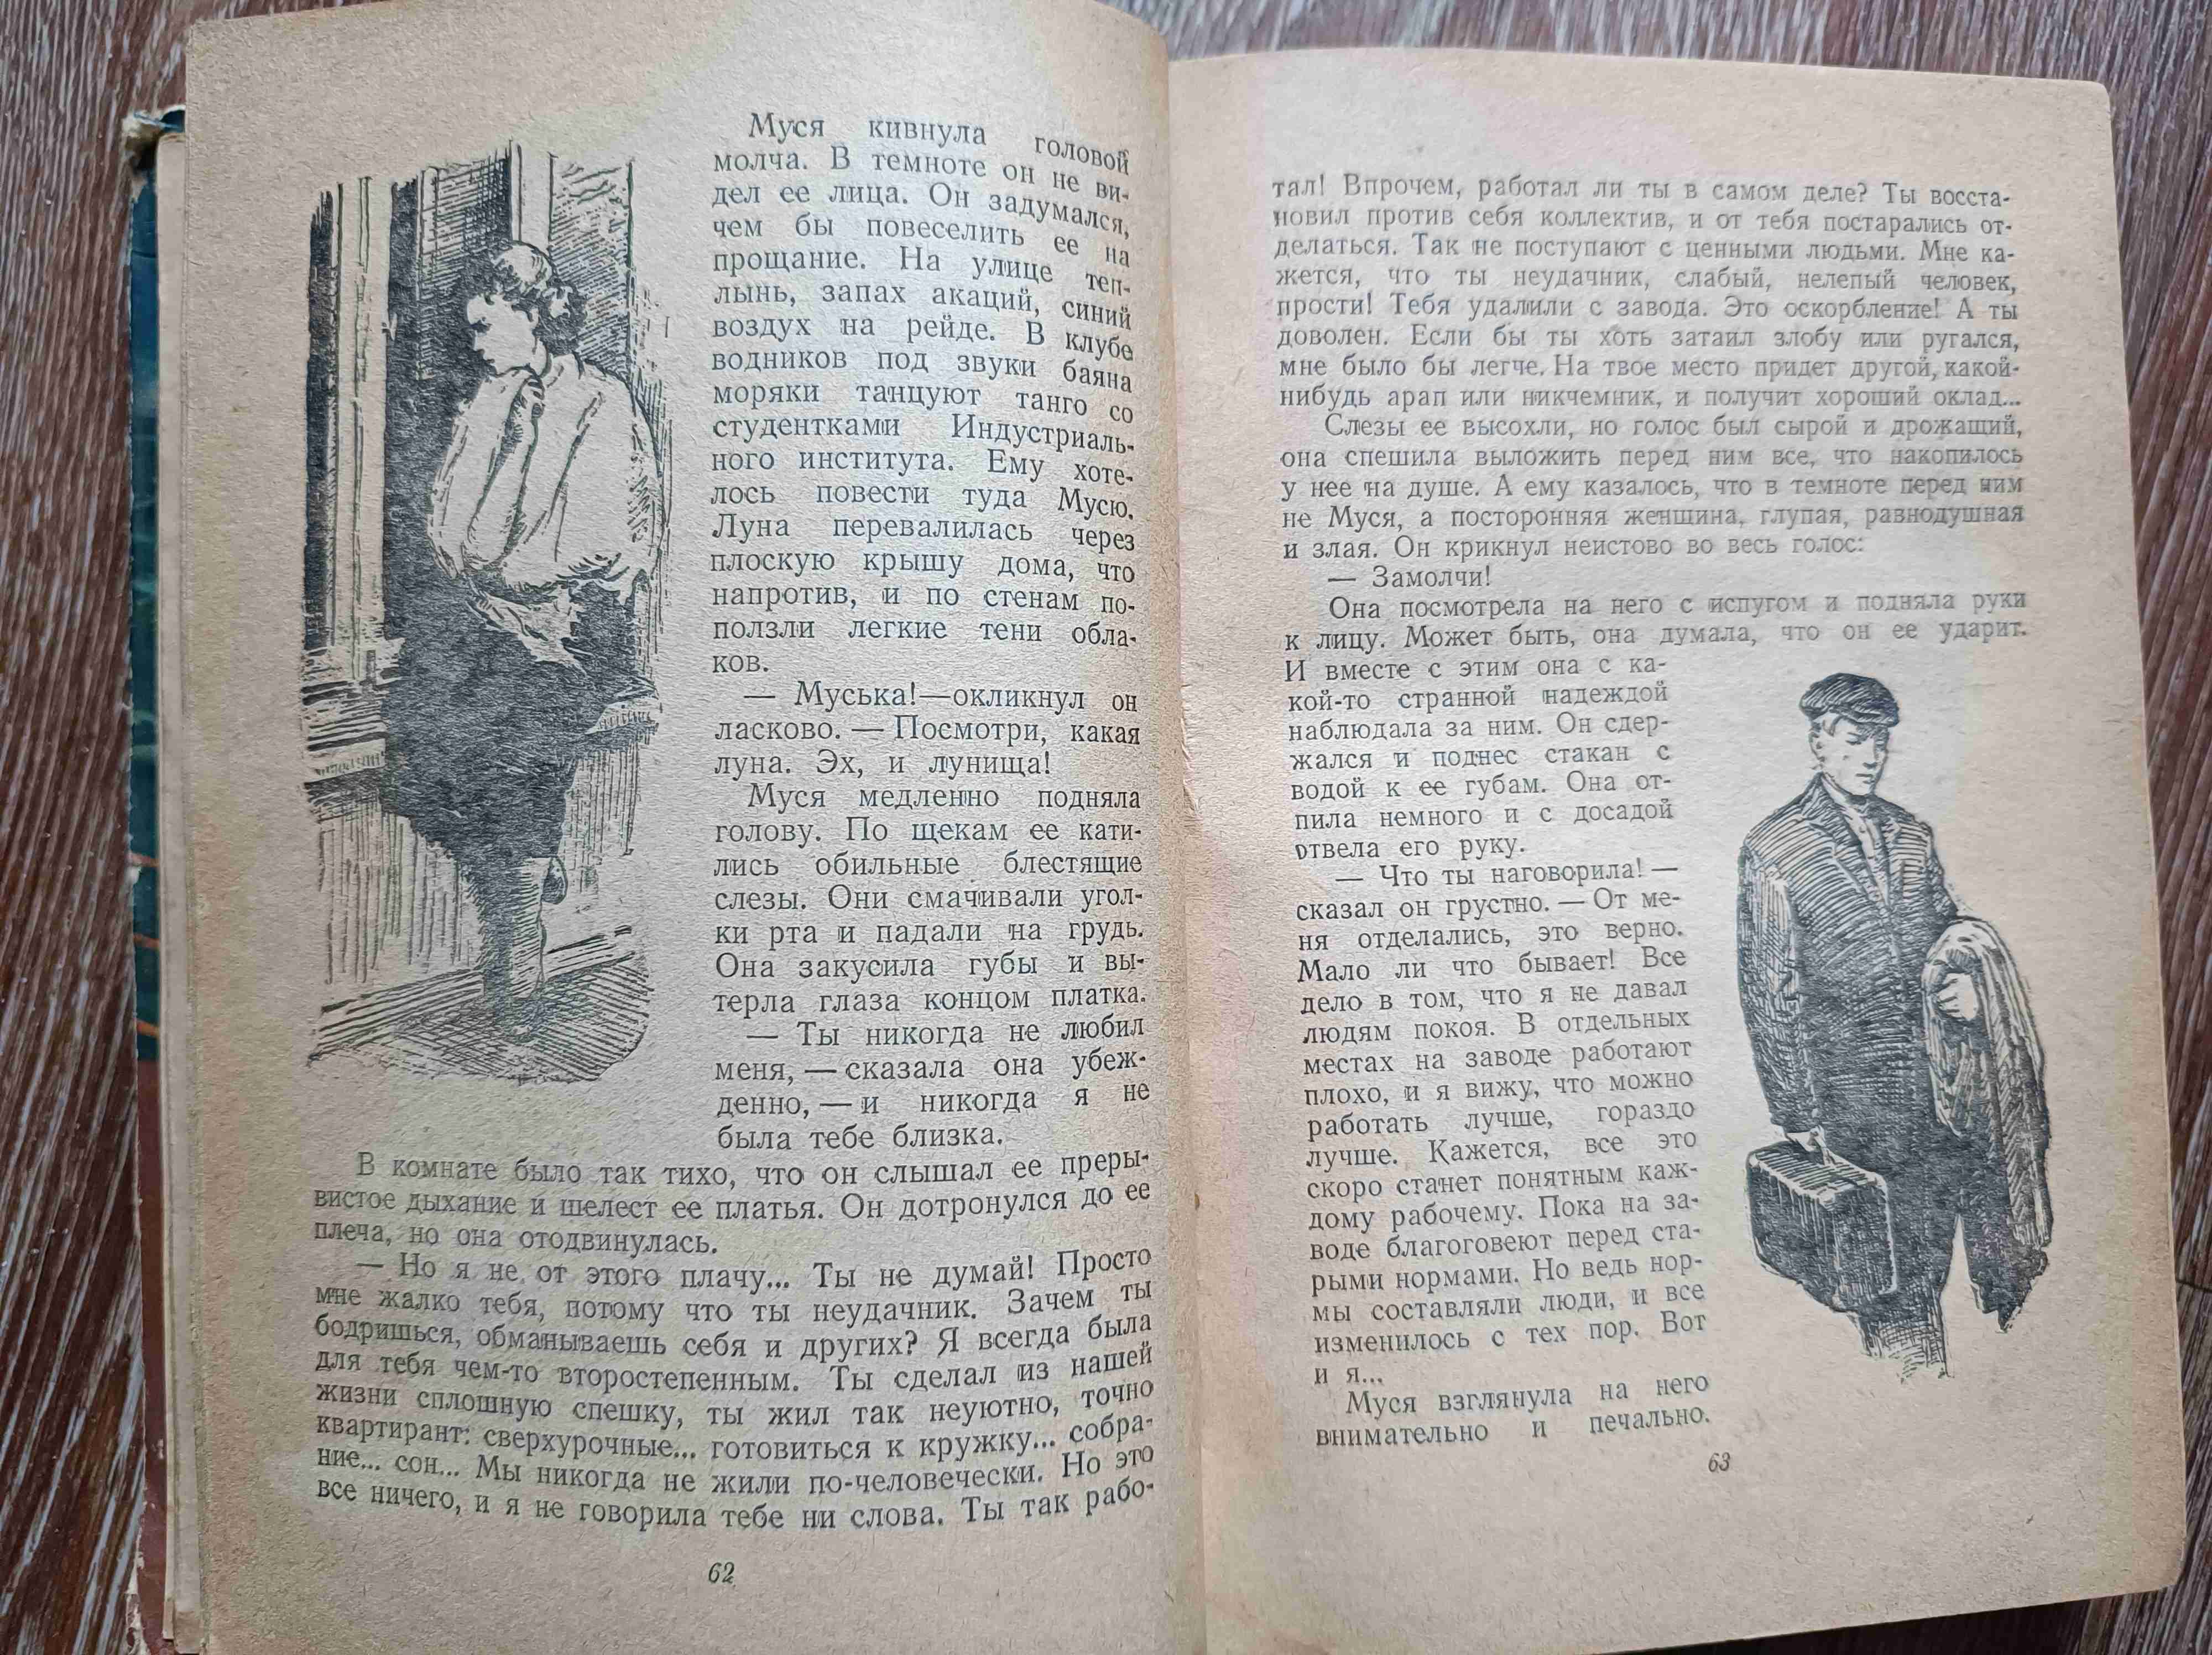 Муся кивнула головой
молча. В темноте он не ви-
дел ее лица. Он задумался,
чем бы повеселить ее на
прощание. На улице теп-
лынь, запах акаций, синий
воздух на рейде. В клубе
водников под звуки баяна
моряки танцуют танго со
студентками Индустриаль-
ного института. Ему хоте-
лось повести туда Мусю.
Луна перевалилась через
плоскую крышу дома, что
напротив, и по стенам по-
ползли легкие тени обла-
ков.
— Муська!—окликнул он
ласково. — Посмотри, какая
луна. Эх, и лунища!
Муся медленно подняла
голову. По щекам ее кати-
лись обильные блестящие
слезы. Они смачивали угол-
ки рта и падали на грудь.
Она закусила губы и вы-
терла глаза концом платка.
— Ты никогда не любил
меня, — сказала она убеж-
денно, — и никогда я не
была тебе близка.
В комнате было так тихо, что он слышал ее преры-
вистое дыхание и шелест ее платья. Он дотронулся до ее
плеча, но она отодвинулась.
— Но я не от этого плачу... Ты не думай! Просто
мне жалко тебя, потому что ты неудачник. Зачем ты
бодришься, обманываешь себя и других? Я всегда была
для тебя чем-то второстепенным. Ты сделал из нашей
жизни сплошную спешку, ты жил так неуютно, точно
квартирант: сверхурочные... готовиться к кружку... собра-
ние... сон... Мы никогда не жили по-человечески. Но это
все ничего, и я не говорила тебе ни слова. Ты так рабо-
62
тал! Впрочем, работал ли ты в самом деле? Ты восста-
новил против себя коллектив, и от тебя постарались от-
делаться. Так не поступают с ценными людьми. Мне ка-
жется, что ты неудачник, слабый, нелепый человек,
прости! Тебя удалили с завода. Это оскорбление! А ты
доволен. Если бы ты хоть затаил злобу или ругался,
мне было бы легче. На твое место придет другой, какой-
нибудь арап или никчемник, и получит хороший оклад...
Слезы ее высохли, но голос был сырой и дрожащий,
она спешила выложить перед ним все, что накопилось
у нее на душе. А ему казалось, что в темноте перед ним
не Муся, а посторонняя женщина, глупая, равнодушная
и злая. Он крикнул неистово во весь голос:
— Замолчи!
Она посмотрела на него с испугом и подняла руки
к лицу. Может быть, она думала, что он ее ударит.
И вместе с этим она с ка-
кой-то странной надеждой
наблюдала за ним. Он сдер-
жался и поднес стакан с
водой к ее губам. Она от-
пила немного и с досадой
отвела его руку.
— Что ты наговорила! —
сказал он грустно. — От ме-
ня отделались, это верно.
Мало ли что бывает! Все
дело в том, что я не давал
людям покоя. В отдельных
местах на заводе работают
плохо, и я вижу, что можно
работать лучше, гораздо
лучше. Кажется, все это
скоро станет понятным каж-
дому рабочему. Пока на за-
воде благоговеют перед ста-
рыми нормами. Но ведь нор-
мы составляли люди, и все
изменилось с тех пор. Вот
и я...
Муся взглянула на него
внимательно и печально.
63